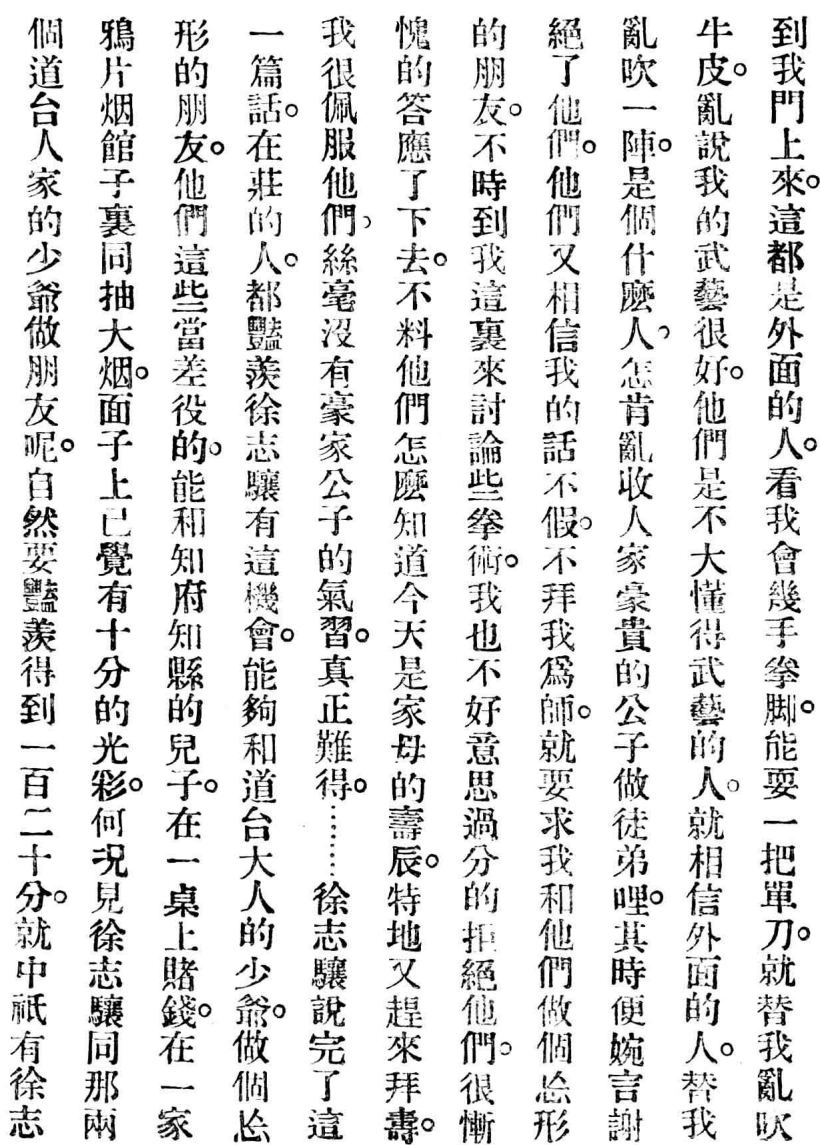 到我門上來。這都是外面的人。看我會幾手拳脚。能耍一把單刀。就替我亂吹
牛皮。亂說我的武藝很好。他們是不大懂得武藝的人。就相信外面的人。替我
亂吹一陣。是個什麼人。怎肯亂收人家豪貴的公子做徒弟哩。其時便婉言謝
絕了他們。他們又相信我的話不假。不拜我爲師。就要求我和他們做個忘形
的朋友。不時到我這裏來討論些拳術。我也不好意思過分的拒絕他們。很慚
愧的答應了下去。不料他們怎麽知道今天是家母的壽辰。特地又趕來拜壽。
我很佩服他們。絲毫沒有豪家公子的氣習。真正難得。……徐志驤說完了這
一篇話。在莊的人。都豔羨徐志驤有這機會。能夠和道台大人的少爺。做個忘
形的朋友。他們這些當差役的。能和知府知縣的兒子。在一桌上賭錢。在一家
鴉片烟館子裏同抽大烟。面子上已覺有十分的光彩。何況見徐志驤同那兩
個道台人家的少爺做朋友呢。自然要豔羨得到一百二十分。就中祇有徐志